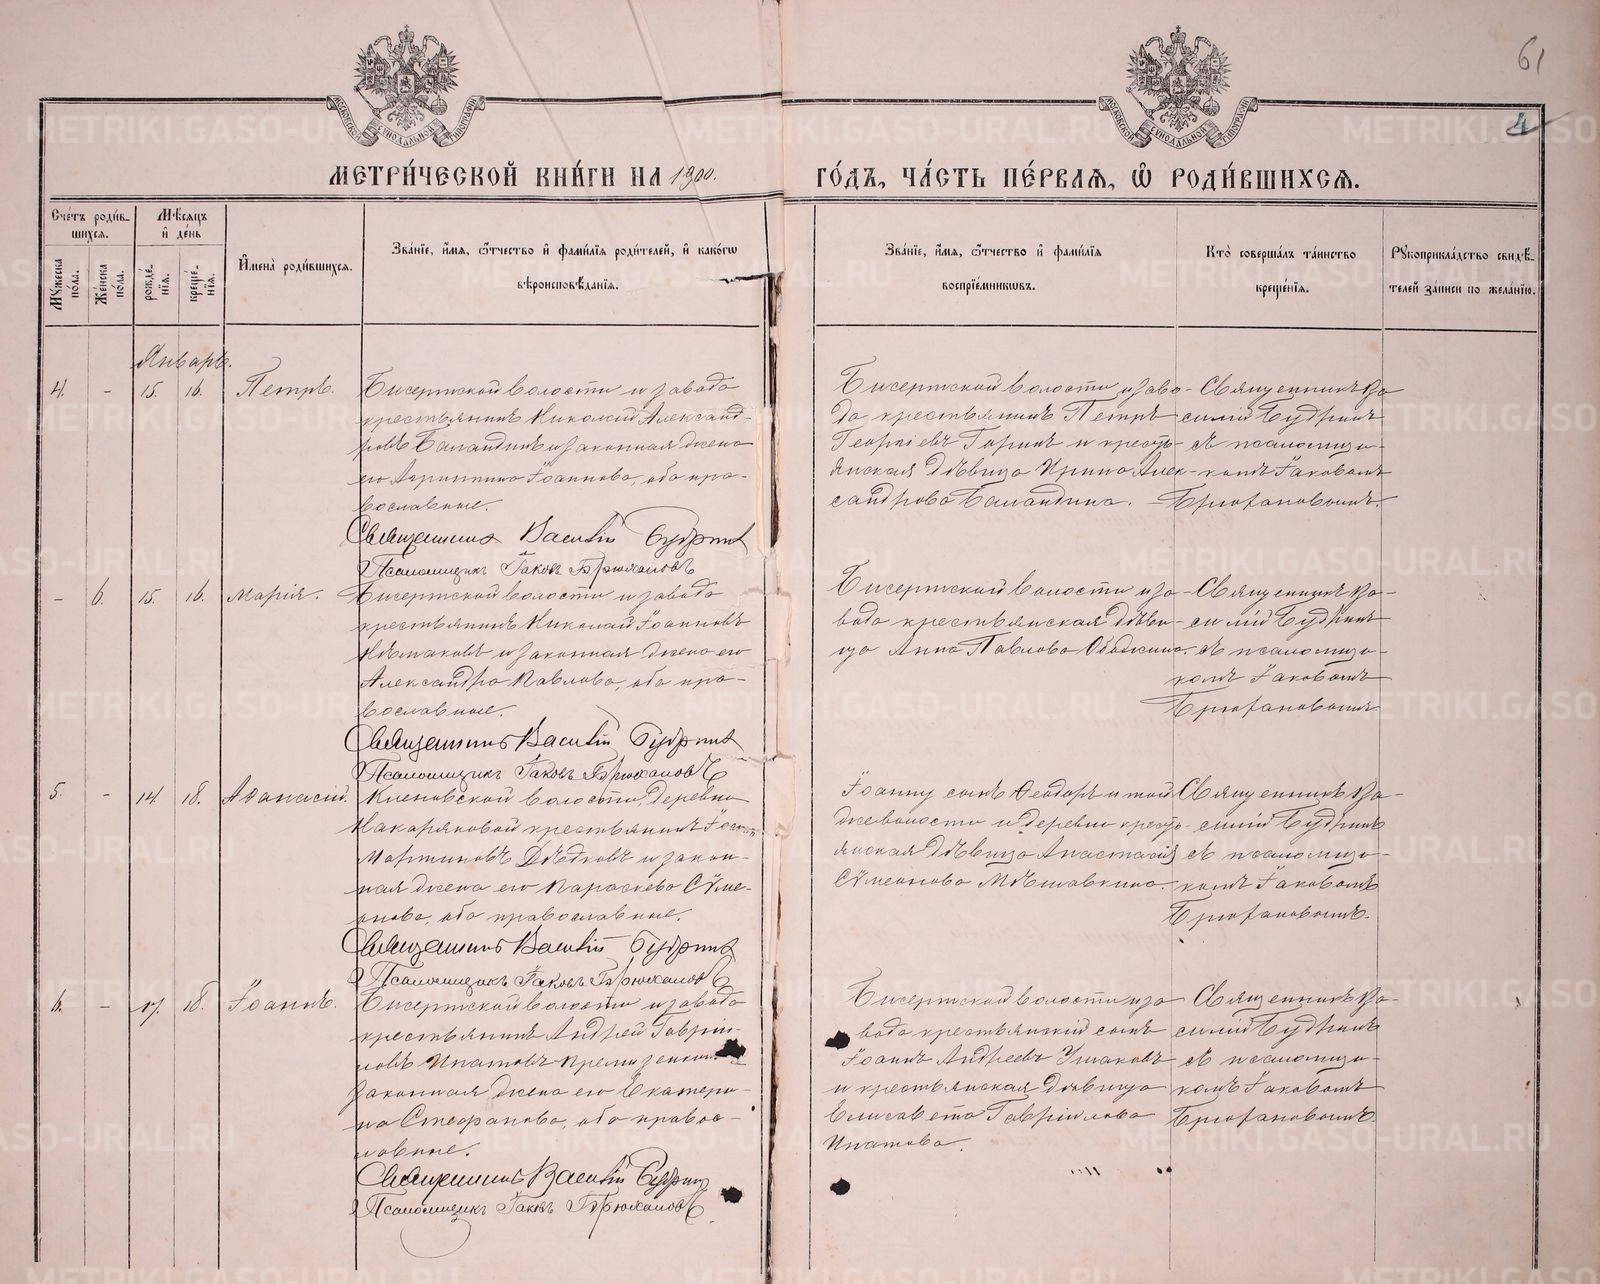 61
4
МОСКОВСКОЙ СИНОДАЛЬНОЙ ТИПОГРАФІИ
МОСКОВСКОЙ СИНОДАЛЬНОЙ ТИПОГРАФІИ
МЕТРИ́ЧЕСКОЙ КНИ́ГИ НА 1900. ГО́ДЪ, ЧА́СТЬ ПЕ́РВАѦ, Ѽ РОДИ́ВШИХСѦ.
Сче́тъ роди́в-
шихсѧ.
Мꙋ́жеска по́ла.
Же́нска по́ла.
Мѣ́сѧцъ и де́нь
рожде́-
нїѧ.
креще́-
нїѧ.
И҆мена̀ роди́вшихсѧ.
Зва́нїе, и҆́мѧ, ѻ҆́тчество и҆ фами́лїѧ роди́телей, и҆ како́гѡ
вѣроисповѣ́данїѧ.
Зва́нїе, и҆́мѧ, ѻ҆́тчество и҆ фами́лїѧ
воспрїе́мникѡвъ.
Кто̀ соверша́лъ та́инство
креще́нїѧ.
Рꙋкоприкла́дство свидѣ́-
телей за́писи по жела́нїю.
Январь.
4. - 15. 16. Петръ.
Бисертской волости и завода
крестьянинъ Николай Александ-
ровъ Баландинъ и законная жена
его Агриппина Іоаннова, оба пра-
вославные.
Священникъ Василій Будринъ
Псаломщикъ Іаковъ Брюхановъ
Бисертской волости и заво-
да крестьянинъ Петръ
Георгіевъ Горинъ и кресть-
янская дѣвица Ирина Алек-
сандрова Баландина.
Священникъ Ва-
силій Будринъ
съ псаломщи-
комъ Іаковомъ
Брюхановымъ.
- 6. 15. 16. Марія.
Бисертской волости и завода
крестьянинъ Николай Іоанновъ
и законная жена его
Александра Павлова, оба пра-
вославные.
Священникъ Василій Будринъ
Псаломщикъ Іаковъ Брюхановъ
Бисертской волости и за-
вода крестьянская дѣви-
ца Анна Павлова
Священникъ Ва-
силій Будринъ
съ псаломщи-
комъ Іаковомъ
Брюхановымъ.
5. - 14. 18. Аѳанасій.
Кленовской волости, деревни
Накоряковой крестьянинъ Іоаннъ
Мартиновъ Дѣдковъ и закон-
ная жена его Параскева Сѵме-
онова, оба православные.
Священникъ Василій Будринъ
Псаломщикъ Іаковъ Брюхановъ
сынъ Ѳеодоръ и той
же волости и деревни кресть-
янская дѣвица Анастасія
Сѵмеонова
Священникъ Ва-
силій Будринъ
съ псаломщи-
комъ Іаковомъ
Брюхановымъ.
6. - 17. 18. Іоаннъ.
Бисертской волости и завода
крестьянинъ Андрей Гавріи-
ловъ Ипатовъ
законная жена его Екатери-
на Стефанова, оба правос-
лавные.
Священникъ Василій Будринъ
Псаломщикъ Іаковъ Брюхановъ
Бисертской волости и за-
вода крестьянскій сынъ
Іоаннъ Андреевъ Ушаковъ
и крестьянская дѣвица
Елисавета Гавріилова
Ипатова.
Священникъ Ва-
силій Будринъ
съ псаломщи-
комъ Іаковомъ
Брюхановымъ.
METRIKI.GASO-URAL.RU